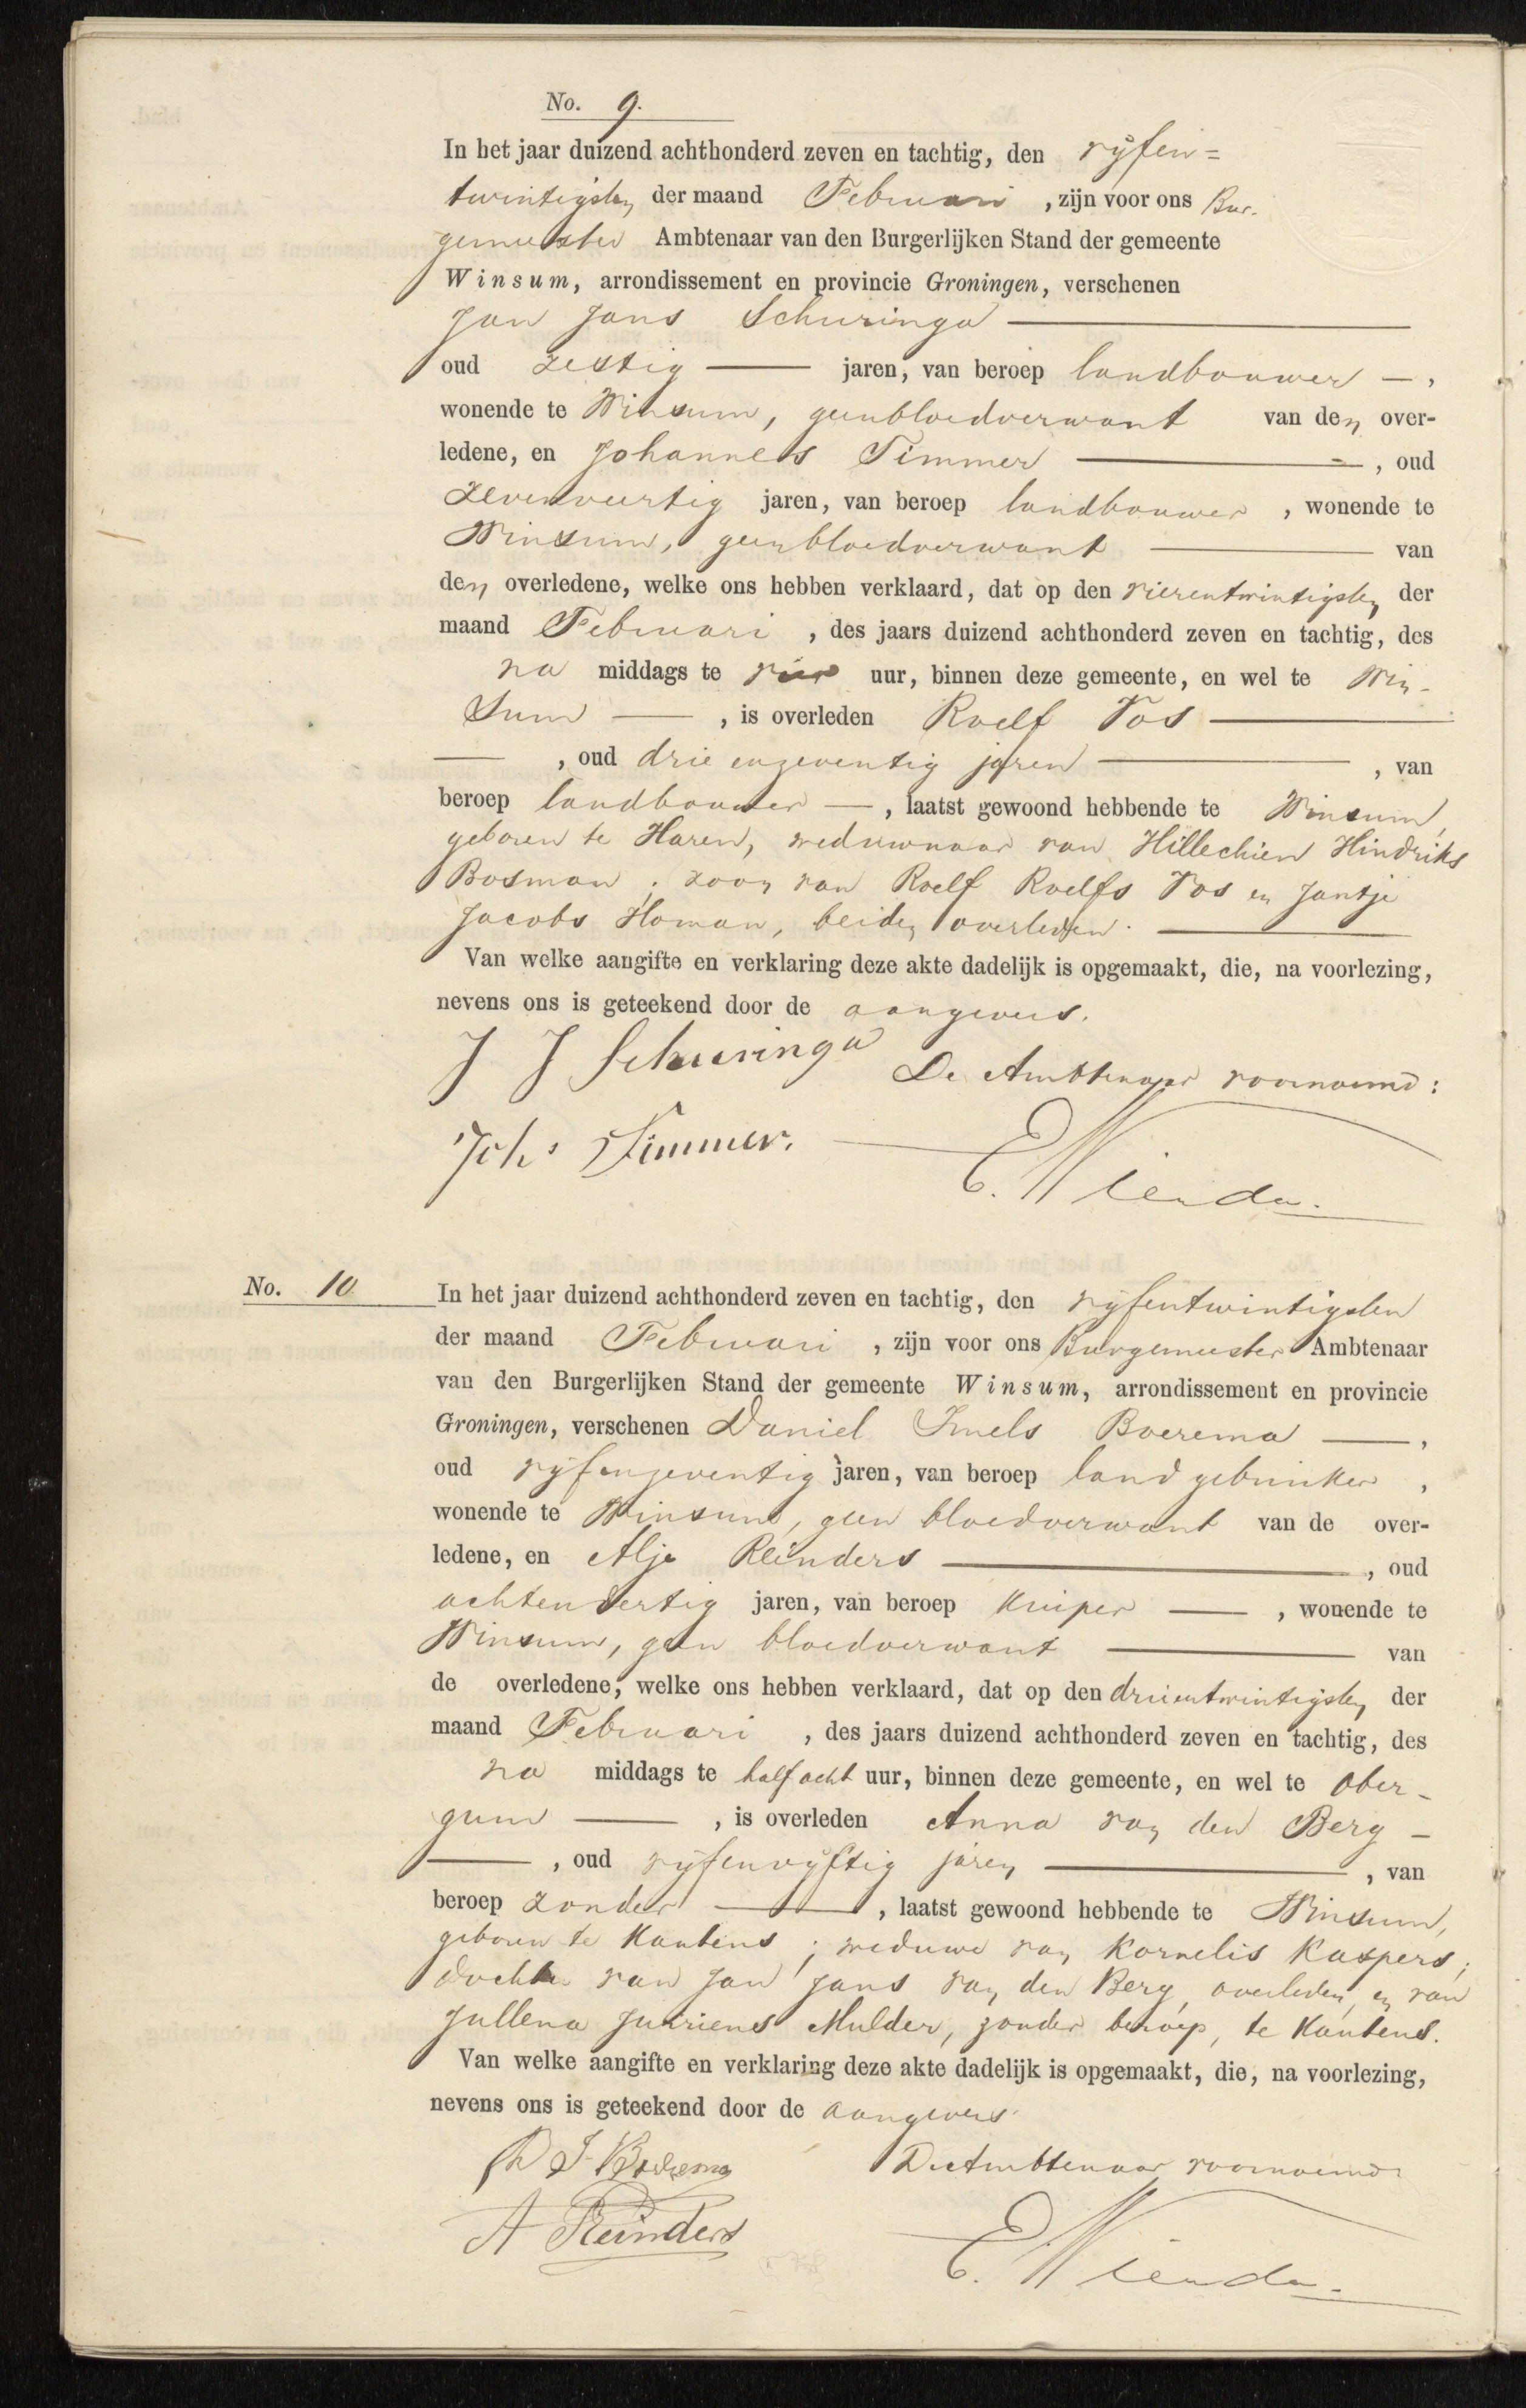 No. 9.
In het jaar duizend achthonderd zeven en tachtig, den vijfen=
twintigsten der maand Februari , zijn voor ons Bur-
gemeester Ambtenaar van den Burgerlijken Stand der gemeente
Winsum, arrondissement en provincie Groningen, verschenen
Jan Jans Schuringa
oud zestig jaren, van beroep landbouwer ,
wonende te Winsum, geen bloedverwant van den over-
ledene, en Johannes Timmer , oud
zevenveertig jaren, van beroep landbouwer , wonende te
Winsum, geen bloedverwant van
den overledene, welke ons hebben verklaard, dat op den vierentwintigsten der
maand Februari , des jaars duizend achthonderd zeven en tachtig, des
na middags te vier uur, binnen deze gemeente, en wel te Win-
sum , is overleden Roelf Vos
, oud drie enzeventig jaren , van
beroep landbouwer , laatst gewoond hebbende te Winsum,
geboren te Haren, weduwnaar van Hillechien Hindriks
Bosman ; zoon van Roelf Roelfs Vos en Jantje
Jacobs Homan, beiden overleden.
Van welke aangifte en verklaring deze akte dadelijk is opgemaakt, die, na voorlezing,
nevens ons is geteekend door de aangevers.
J J Schuringa De Ambtenaar voornoemd:
Johs Timmer.
No. 10 In het jaar duizend achthonderd zeven en tachtig, den vijfentwintigsten
der maand Februari , zijn voor ons Burgemeester Ambtenaar
van den Burgerlijken Stand der gemeente Winsum, arrondissement en provincie
Groningen, verschenen Daniel Imels Boerema ,
oud vijfenzeventig jaren, van beroep landgebruiker ,
wonende te Winsum, geen bloedverwant van de over-
ledene, en Alje Reinders , oud
achtendertig jaren, van beroep kuiper , wonende te
Winsum, geen bloedverwant van
de overledene, welke ons hebben verklaard, dat op den drieentwintigsten der
maand Februari , des jaars duizend achthonderd zeven en tachtig, des
na middags te half acht uur, binnen deze gemeente, en wel te Ober-
gum , is overleden Anna van den Berg
, oud vijfenvijftig jaren , van
beroep zonder , laatst gewoond hebbende te Winsum,
geboren te Kantens ; weduwe van Kornelis Kaspers;
dochter van Jan Jans van den Berg, overleden, en van
Jullena Jurriens Mulder, zonder beroep, te Kantens.
Van welke aangifte en verklaring deze akte dadelijk is opgemaakt, die, na voorlezing,
nevens ons is geteekend door de aangevers
D I Boerema De Ambtenaar voornoemd:
A Reinders